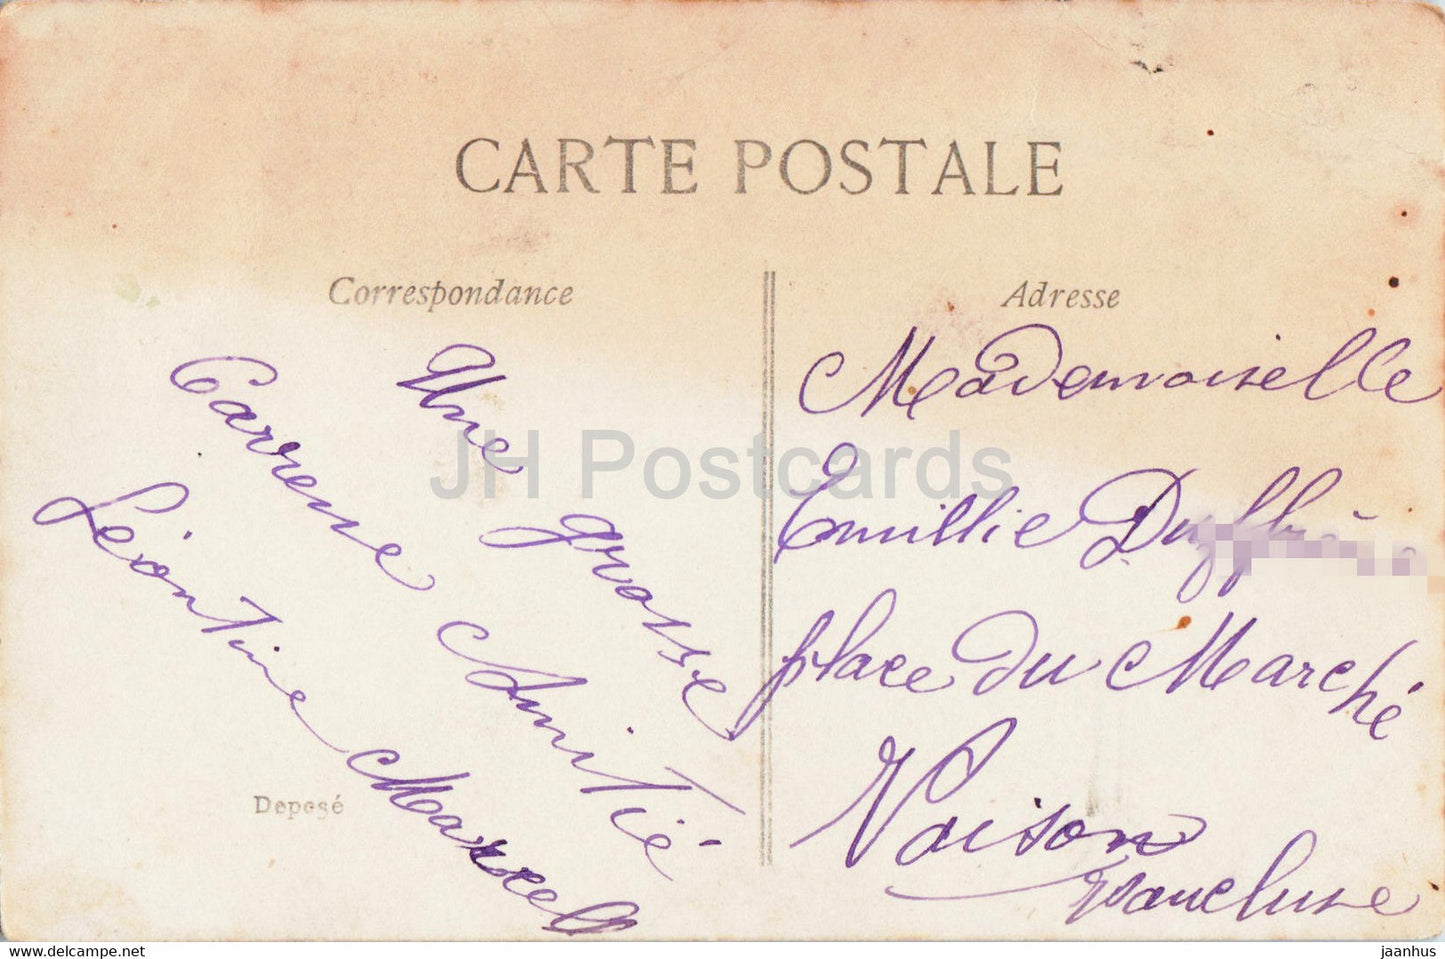 CARTE POSTALE
Correspondance
Adresse
Une grosse
Carresse Amitié
Léontine Marcell
Deposé
Mademoiselle
Emillie
place du Marché
Vaison
Vaucluse
JH Postcards
https://www.delcampe.net
jaanhus